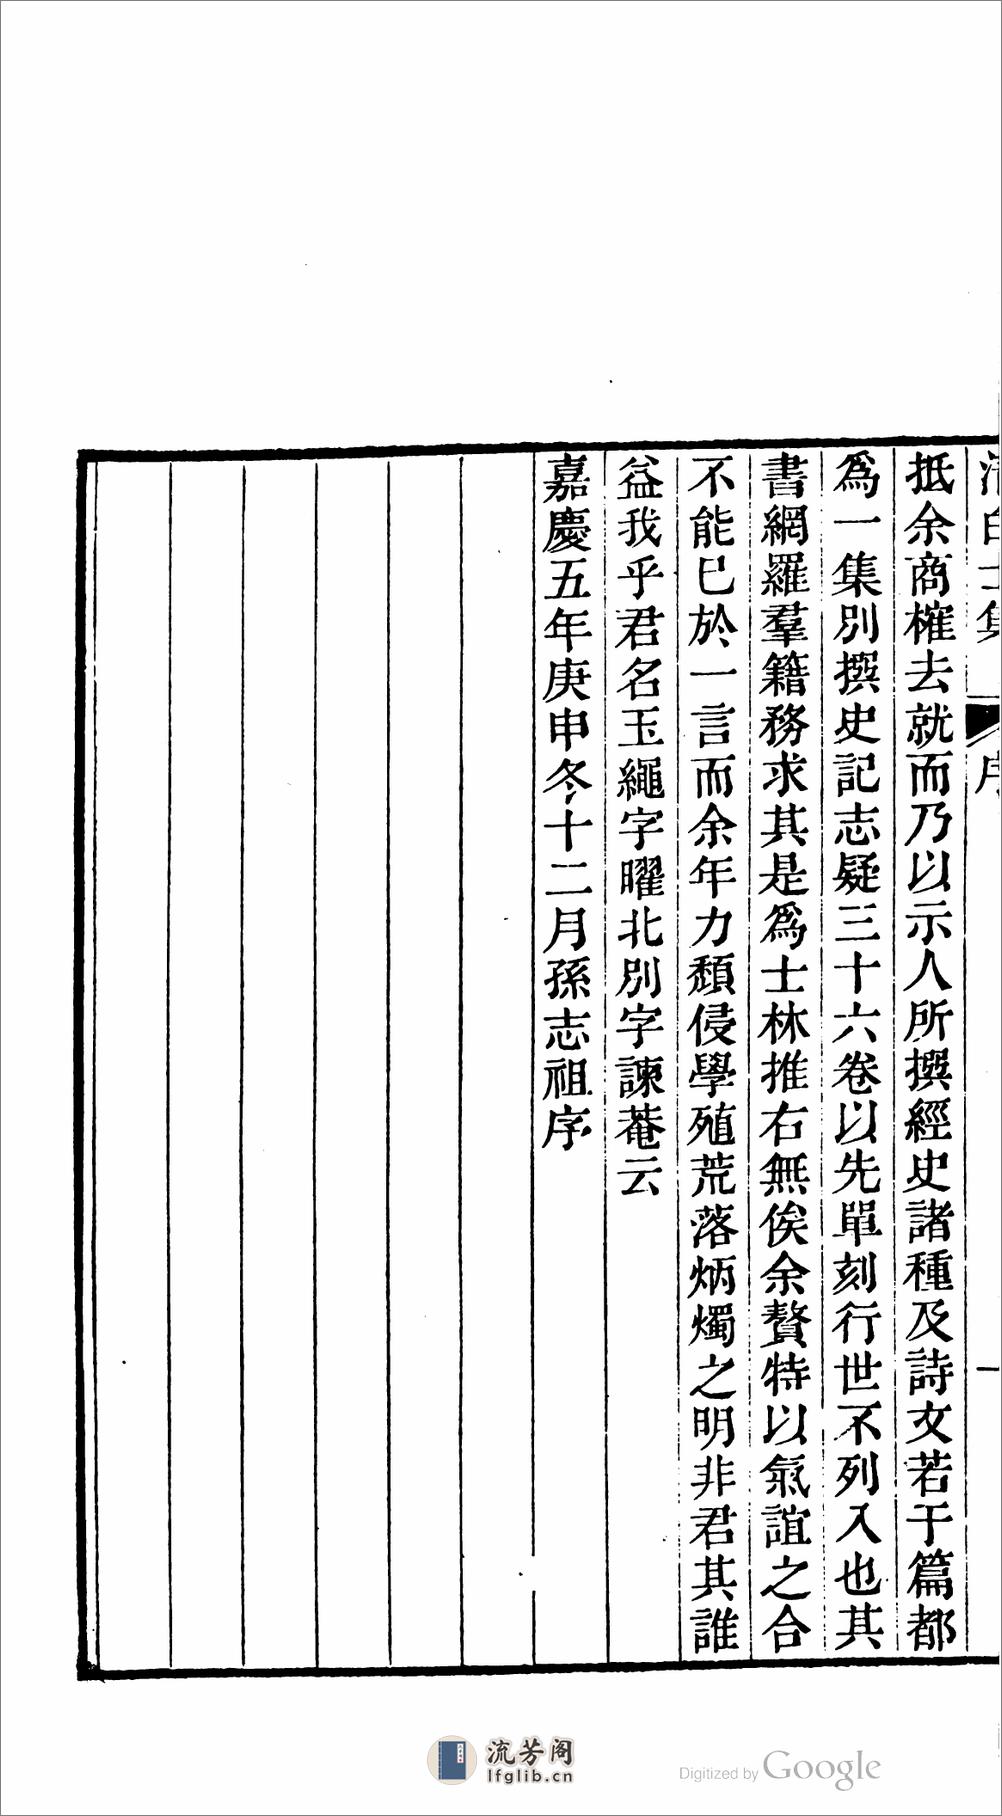 抵余商榷去就而乃以示人所撰經史諸種及詩文若干篇都
爲一集別撰史記志疑三十六卷以先單刻行世不列入也其
書網羅羣籍務求其是爲士林推右無俟余贅特以氣誼之合
不能已於一言而余年力頹侵學殖荒落炳燭之明非君其誰
益我乎君名玉繩字曜北別字諫菴云
嘉慶五年庚申冬十二月孫志祖序
流芳阁
lfglib.cn
Digitized by Google